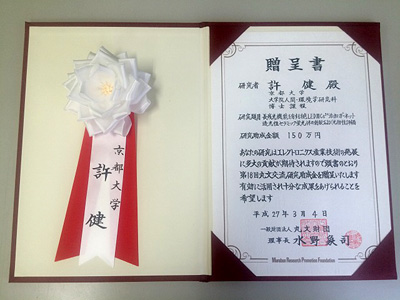 京都大学
許健
贈呈書
研究者 許健 殿
京都大学
大学院人間・環境学研究科
博士課程
研究助成金額 150万円
あなたの研究はエレクトロニクス産業技術の発展
に多大の貢献が期待されますので頭書のとおり
第18回丸文交流研究助成金を贈呈いたします
有効に活用され十分な成果をあげられることを
希望します
平成27年3月4日
一般財団法人 丸文財団
理事長 水野象司
Marubun Research Promotion Foundation